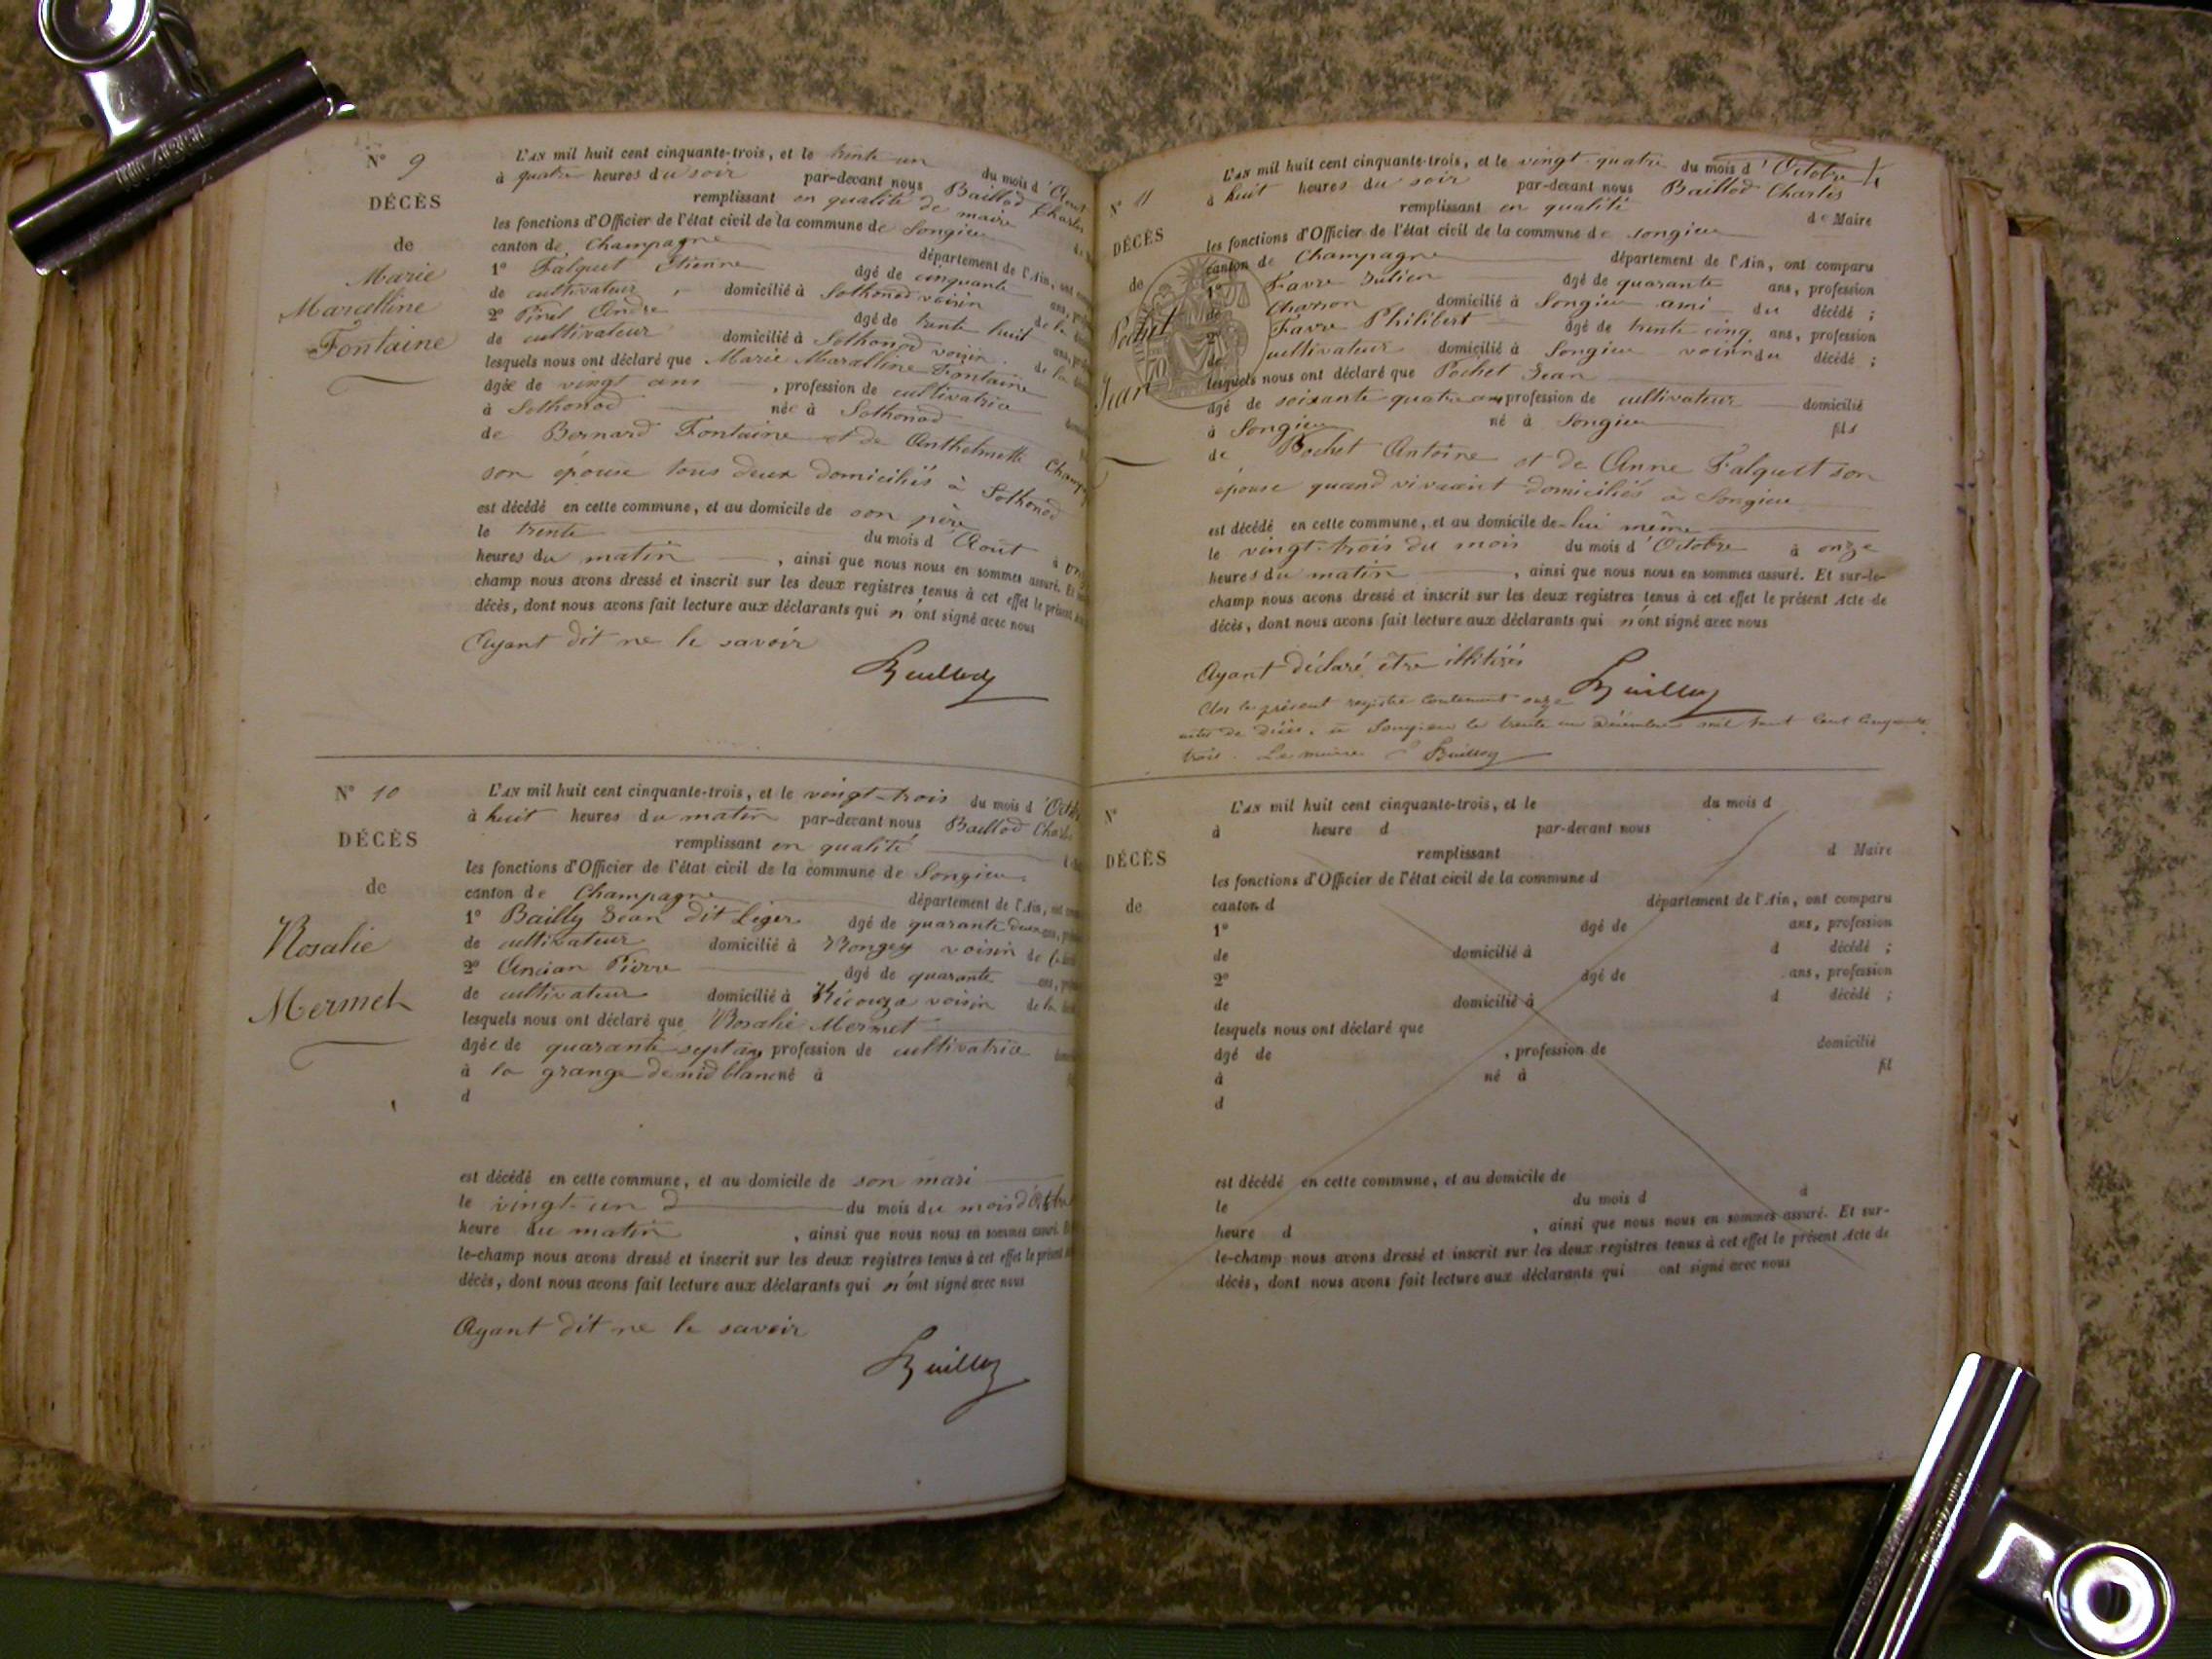 N° 9
DÉCÈS
de
Marie
Marcelline
Fontaine
L'AN mil huit cent cinquante-trois, et le trente un du mois d'Aout
à quatre heures du soir par-devant nous Baillod Charles
remplissant en qualité de maire
les fonctions d'Officier de l'état civil de la commune de Songieu
canton de Champagne département de l'Ain, ont
1° Falquet Etienne âgé de cinquante ans,
de cultivateur, domicilié à Sothonod voisin de la
2° Pinel Andre âgé de trente huit ans,
de cultivateur domicilié à Sothonod voisin de la
lesquels nous ont déclaré que Marie Marcelline Fontaine
âgée de vingt ans, profession de cultivatrice
à Sothonod née à Sothonod
de Bernard Fontaine et de Anthelmette
son épouse tous deux domiciliés à Sothonod
est décédé en cette commune, et au domicile de son père
le trente du mois d Aout à
heures du matin, ainsi que nous nous en sommes assuré. Et
champ nous avons dressé et inscrit sur les deux registres tenus à cet effet le présent
décès, dont nous avons fait lecture aux déclarants qui n'ont signé avec nous
Ayant dit ne le savoir
Baillod
N° 10
DÉCÈS
de
Rosalie
Mermet
L'AN mil huit cent cinquante-trois, et le vingt-trois du mois d'
à huit heures du matin par-devant nous Baillod
remplissant en qualité
les fonctions d'Officier de l'état civil de la commune de Songieu
canton de Champagne département de l'Ain,
1° Bailly Jean dit Liger âgé de quarante deux ans,
de cultivateur domicilié à voisin de
2° Ancian Pierre âgé de quarante ans,
de cultivateur domicilié à voisin de la
lesquels nous ont déclaré que Rosalie Mermet
âgée de quarante sept ans profession de cultivatrice
à la grange de nid blanc né à
d
est décédé en cette commune, et au domicile de son mari
le vingt-un d du mois du mois d'
heure du matin, ainsi que nous nous en sommes assuré.
le-champ nous avons dressé et inscrit sur les deux registres tenus à cet effet le présent
décès, dont nous avons fait lecture aux déclarants qui n'ont signé avec nous
Ayant dit ne le savoir
Baillod
N° 11
DÉCÈS
de
Pochet
Jean
L'AN mil huit cent cinquante-trois, et le vingt-quatre du mois d'Octobre
à huit heures du soir par-devant nous Baillod Charles
remplissant en qualité de Maire
les fonctions d'Officier de l'état civil de la commune de songieu
canton de Champagne département de l'Ain, ont comparu
1° Favre Julien âgé de quarante ans, profession
de Charron domicilié à Songieu ami du décédé ;
2° Favre Philibert âgé de trente cinq ans, profession
de cultivateur domicilié à Songieu voisin du décédé ;
lesquels nous ont déclaré que Pochet Jean
âgé de soixante quatre ans profession de cultivateur domicilié
à Songieu né à Songieu fils
de Pochet Antoine et de Anne Falquet son
épouse quand vivaient domiciliés à Songieu
est décédé en cette commune, et au domicile de lui même
le vingt-trois du mois du mois d'Octobre à onze
heures du matin, ainsi que nous nous en sommes assuré. Et sur-le-
champ nous avons dressé et inscrit sur les deux registres tenus à cet effet le présent Acte de
décès, dont nous avons fait lecture aux déclarants qui n'ont signé avec nous
Ayant déclaré être illitérés
Baillod
Clos le présent registre contenant onze
actes de décès. à Songieu le trente un Décembre mil huit cent cinquante
trois. Le maire Baillod
N°
DÉCÈS
de
L'AN mil huit cent cinquante-trois, et le du mois d
à heure d par-devant nous
remplissant d Maire
les fonctions d'Officier de l'état civil de la commune d
canton d département de l'Ain, ont comparu
1° âgé de ans, profession
de domicilié à d décédé ;
2° âgé de ans, profession
de domicilié à d décédé ;
lesquels nous ont déclaré que
âgé de , profession de domicilié
à né à fil
d
est décédé en cette commune, et au domicile de
le du mois d à
heure d , ainsi que nous nous en sommes assuré. Et sur-
le-champ nous avons dressé et inscrit sur les deux registres tenus à cet effet le présent Acte de
décès, dont nous avons fait lecture aux déclarants qui ont signé avec nous